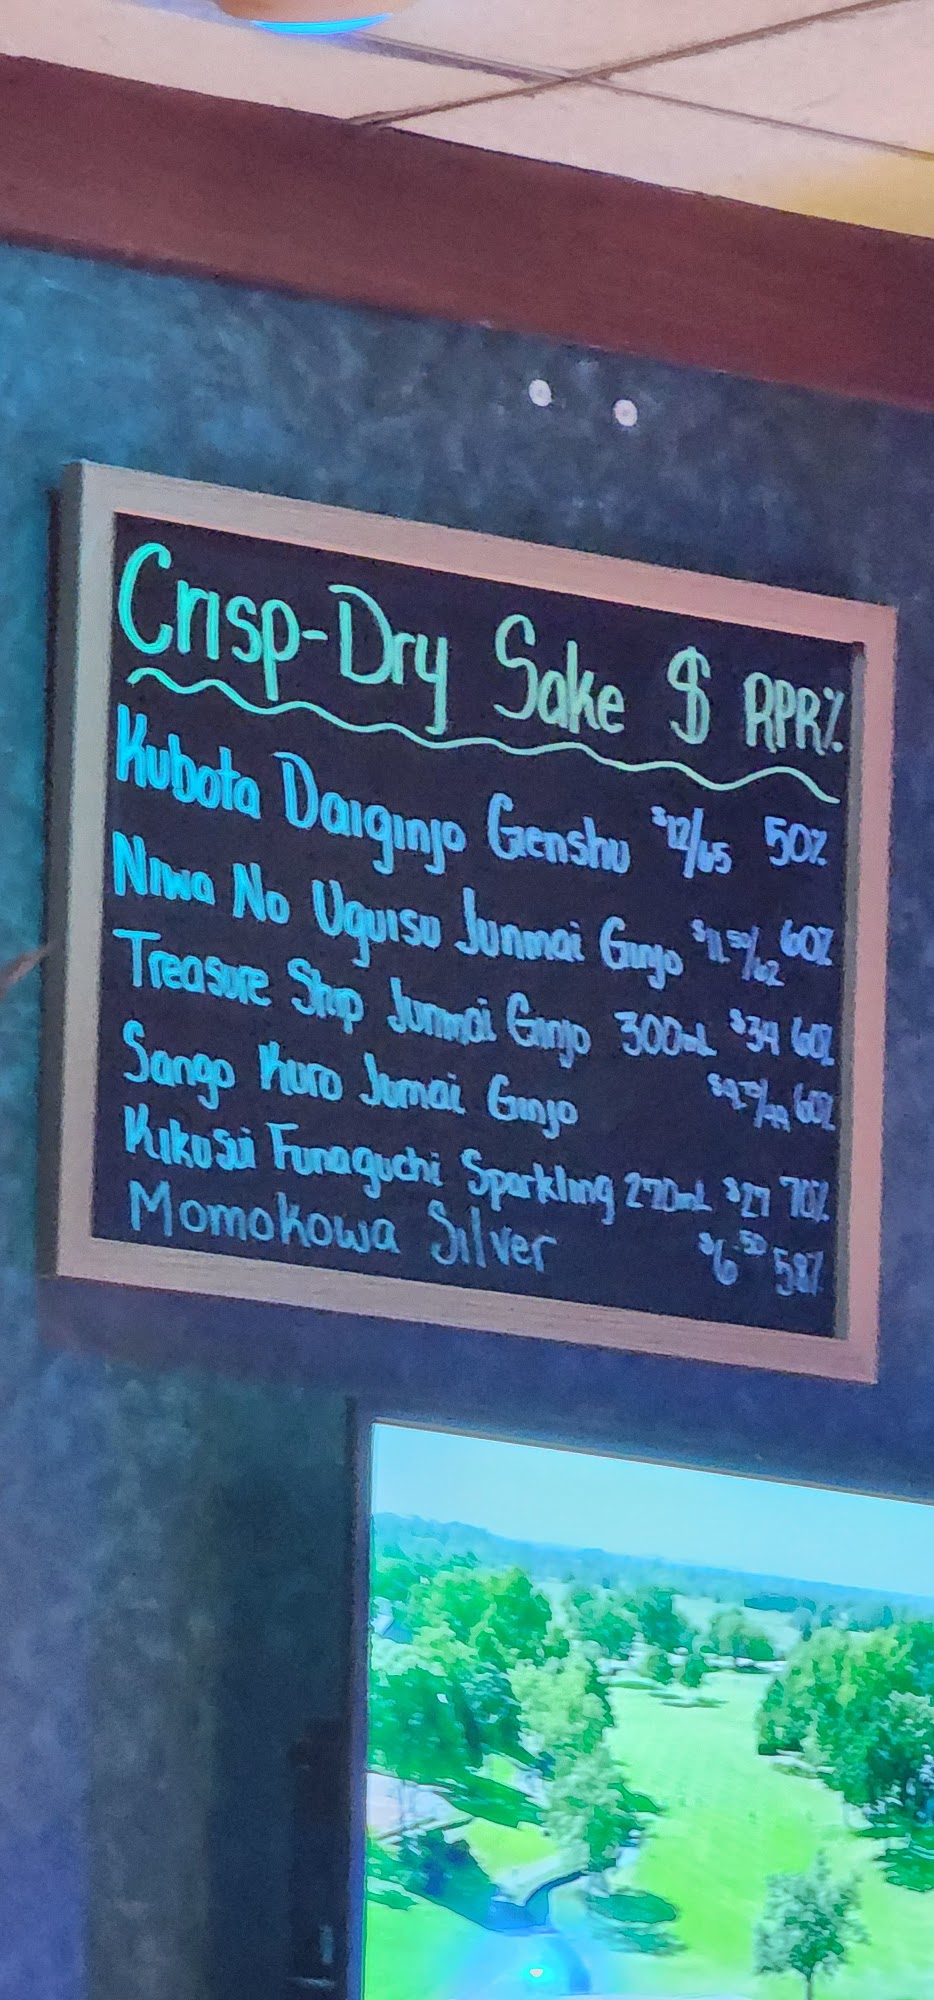 Crisp-Dry Sake $ RPR%
Kubota Daiginjo Genshu $12/65 50%
Niwa No Uguisu Junmai Ginjo $11.50/62 60%
Treasure Ship Junmai Ginjo 300mL $34 60%
Sango Kuro Jumai Ginjo 60%
Kikusui Funaguchi Sparkling 270mL $27 70%
Momokowa Silver $6.50 58%